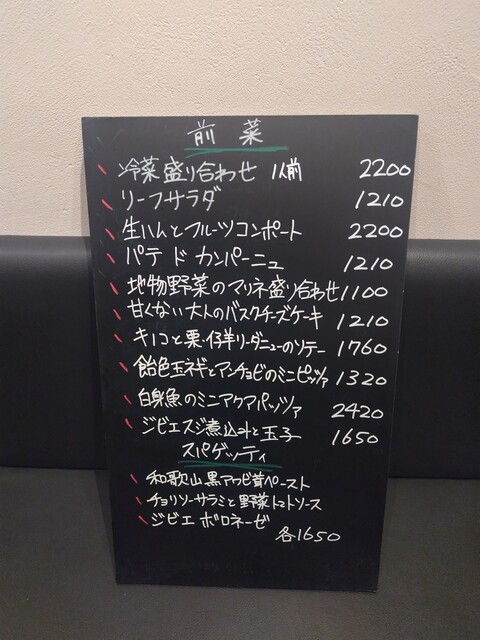 前菜
冷菜盛り合わせ 1人前 2200
リーフサラダ 1210
生ハムとフルーツコンポート 2200
パテ ド カンパーニュ 1210
地物野菜のマリネ盛り合わせ 1100
甘くない大人のバスクチーズケーキ 1210
キノコと栗・仔羊リーダニューのソテー 1760
飴色玉ネギとアンチョビのミニピッツァ 1320
白身魚のミニアクアパッツァ 2420
ジビエスジ煮込みと玉子 1650
スパゲッティ
和歌山黒アワビ茸ペースト
チョリソーサラミと野菜トマトソース
ジビエ ボロネーゼ
各1650